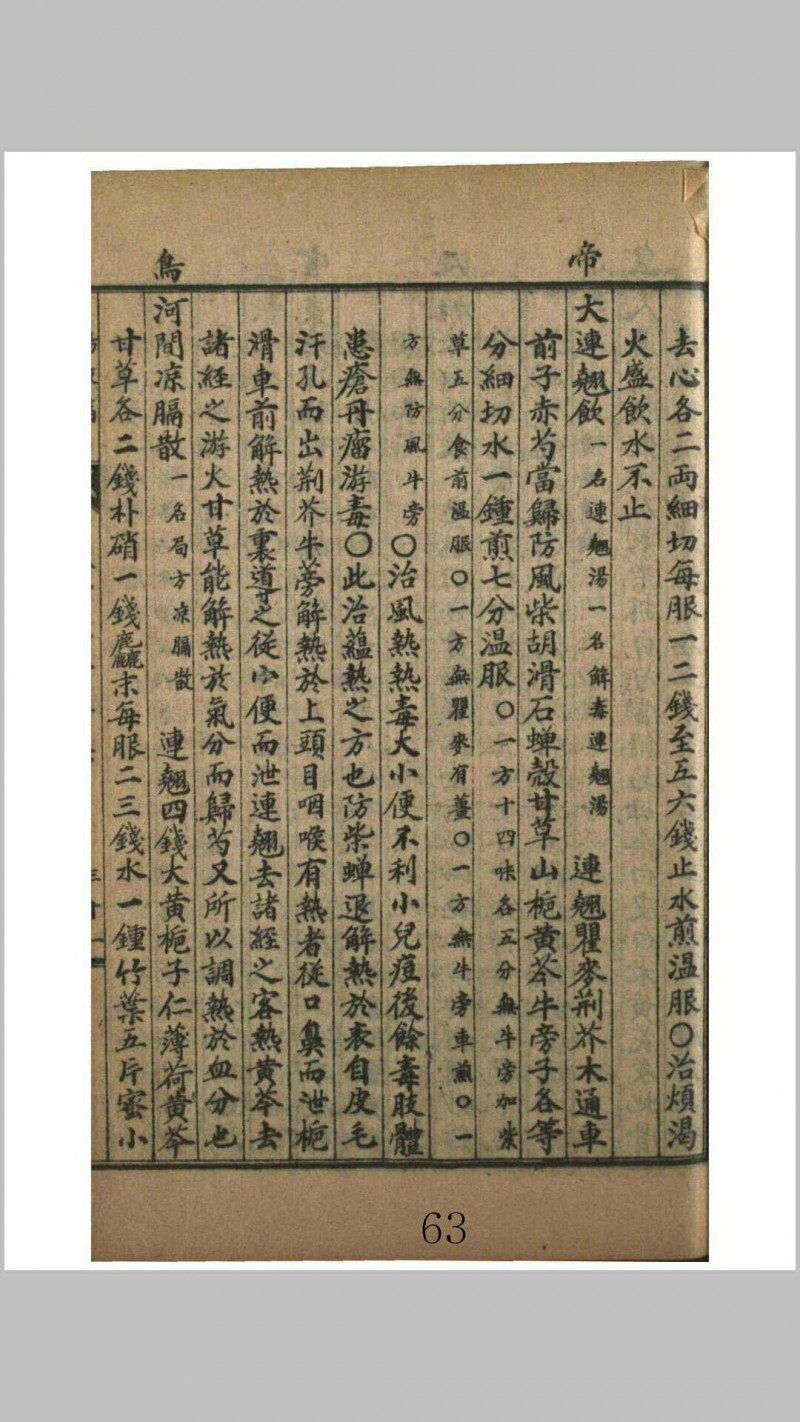 帝
去心各二両細切每服一二錢至五六錢止水煎温服〇治煩渴
火盛飲水不止
大連翹飲一名連翹湯一名解毒連翹湯 連翹瞿麥荆芥木通車
前子赤芍當歸防風柴胡滑石蝉殼甘草山梔黄芩牛旁子各等
分細切水一鍾煎七分温服〇一方十四味各五分無牛旁加柴
草五分食前温服〇一方無瞿麥有薑〇一方無牛旁車煎〇一
方無防風牛旁〇治風熱熱毒大小便不利小兒痘後餘毒肢體
患瘡丹瘤游毒〇此治蘊熱之方也防柴蝉退解熱於表自皮毛
汗孔而出荆芥牛蒡解熱於上頭目咽喉有熱者從口鼻而泄梔
滑車前解熱於裏導之從小便而泄連翹去諸經之客熱黄芩去
諸經之游火甘草能解熱於氣分而歸芍又所以調熱於血分也
鳥
河間凉膈散一名局方凉膈散 連翹四錢大黄梔子仁薄荷黄芩
甘草各二錢朴硝一錢麄末每服二三錢水一鍾竹葉五斤蜜小
63